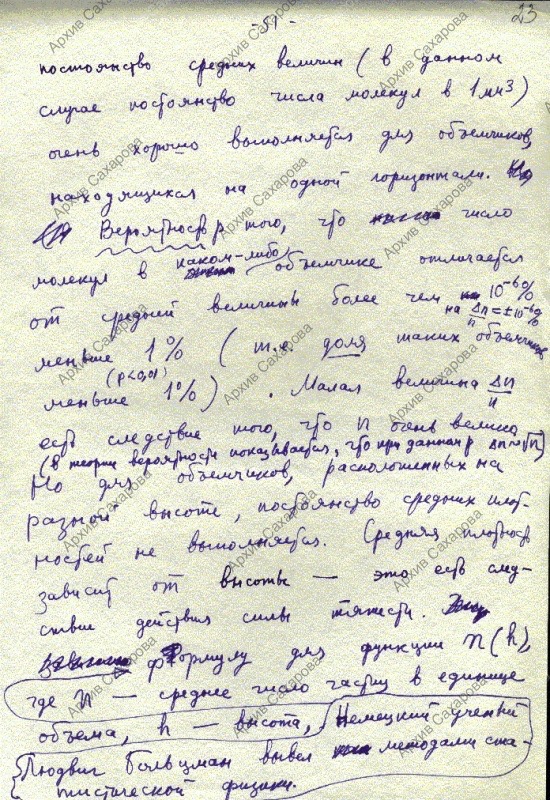 23
- 51 -
постоянство средних величин (в данном
случае постоянство числа молекул в 1 мм³)
очень хорошо выполняется для объемчиков,
находящихся на одной горизонтали.
Вероятность p того, что число
молекул в каком-либо объемчике отличается
от средней величины более чем на 10⁻⁶%
на Δn/n = ±10⁻⁶%
меньше 1% (т.е. доля таких объемчиков
(p<0,01)
меньше 1%). Малая величина Δn/n
есть следствие того, что n очень велико
(в теории вероятности показывается, что при данном p Δn~√n)
Но для объемчиков, расположенных на
разной высоте, постоянство средних плот-
ностей не выполняется. Средняя плотность
зависит от высоты — это есть след-
ствие действия силы тяжести.
формулу для функции n(h),
где n — среднее число частиц в единице
объема, h — высота, Немецкий ученый
Людвиг Больцман вывел методами ста-
тистической физики.
Архив Сахарова